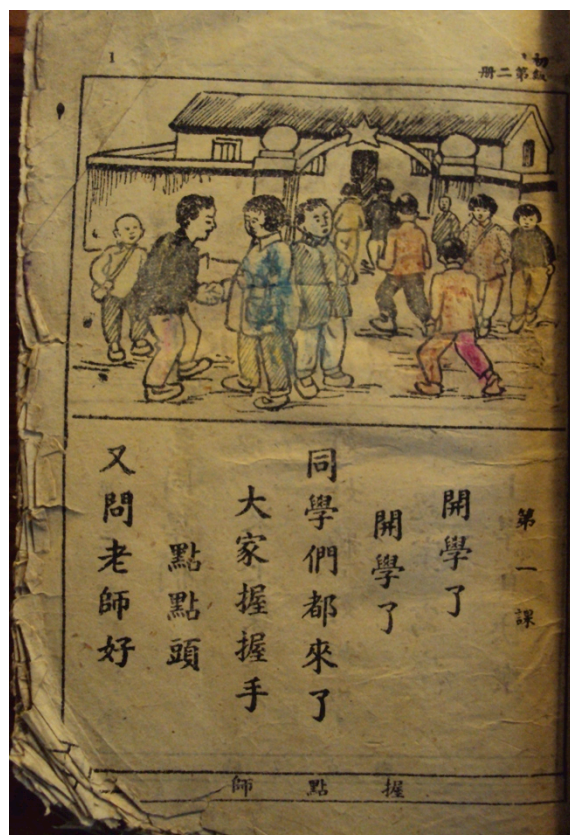 初級第二册
1
第一課
開學了
開學了
同學們都來了
大家握握手
點點頭
又問老師好
握 點 師